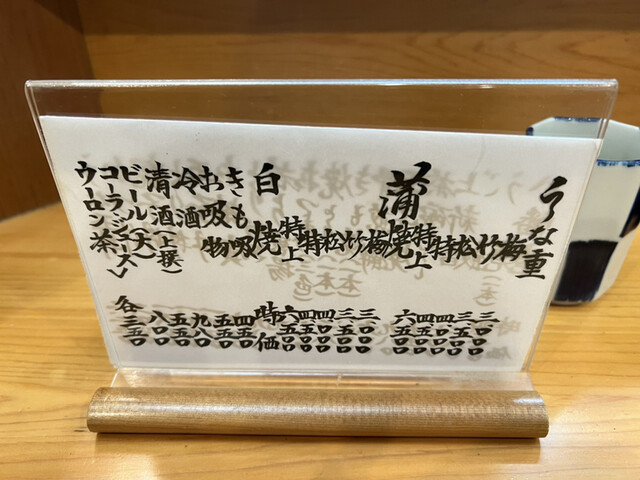 うな重
梅 三〇〇〇
竹 三五〇〇
松 四〇〇〇
特 四五〇〇
特上 六五〇〇
蒲焼
梅 三〇〇〇
竹 三五〇〇
松 四〇〇〇
特 四五〇〇
特上 六五〇〇
白焼 時価
きも吸
お吸物
冷酒 九八〇
清酒(上撰) 五五〇
ビール(大) 八〇〇
コーラ・ジュース
ウーロン茶 各三五〇